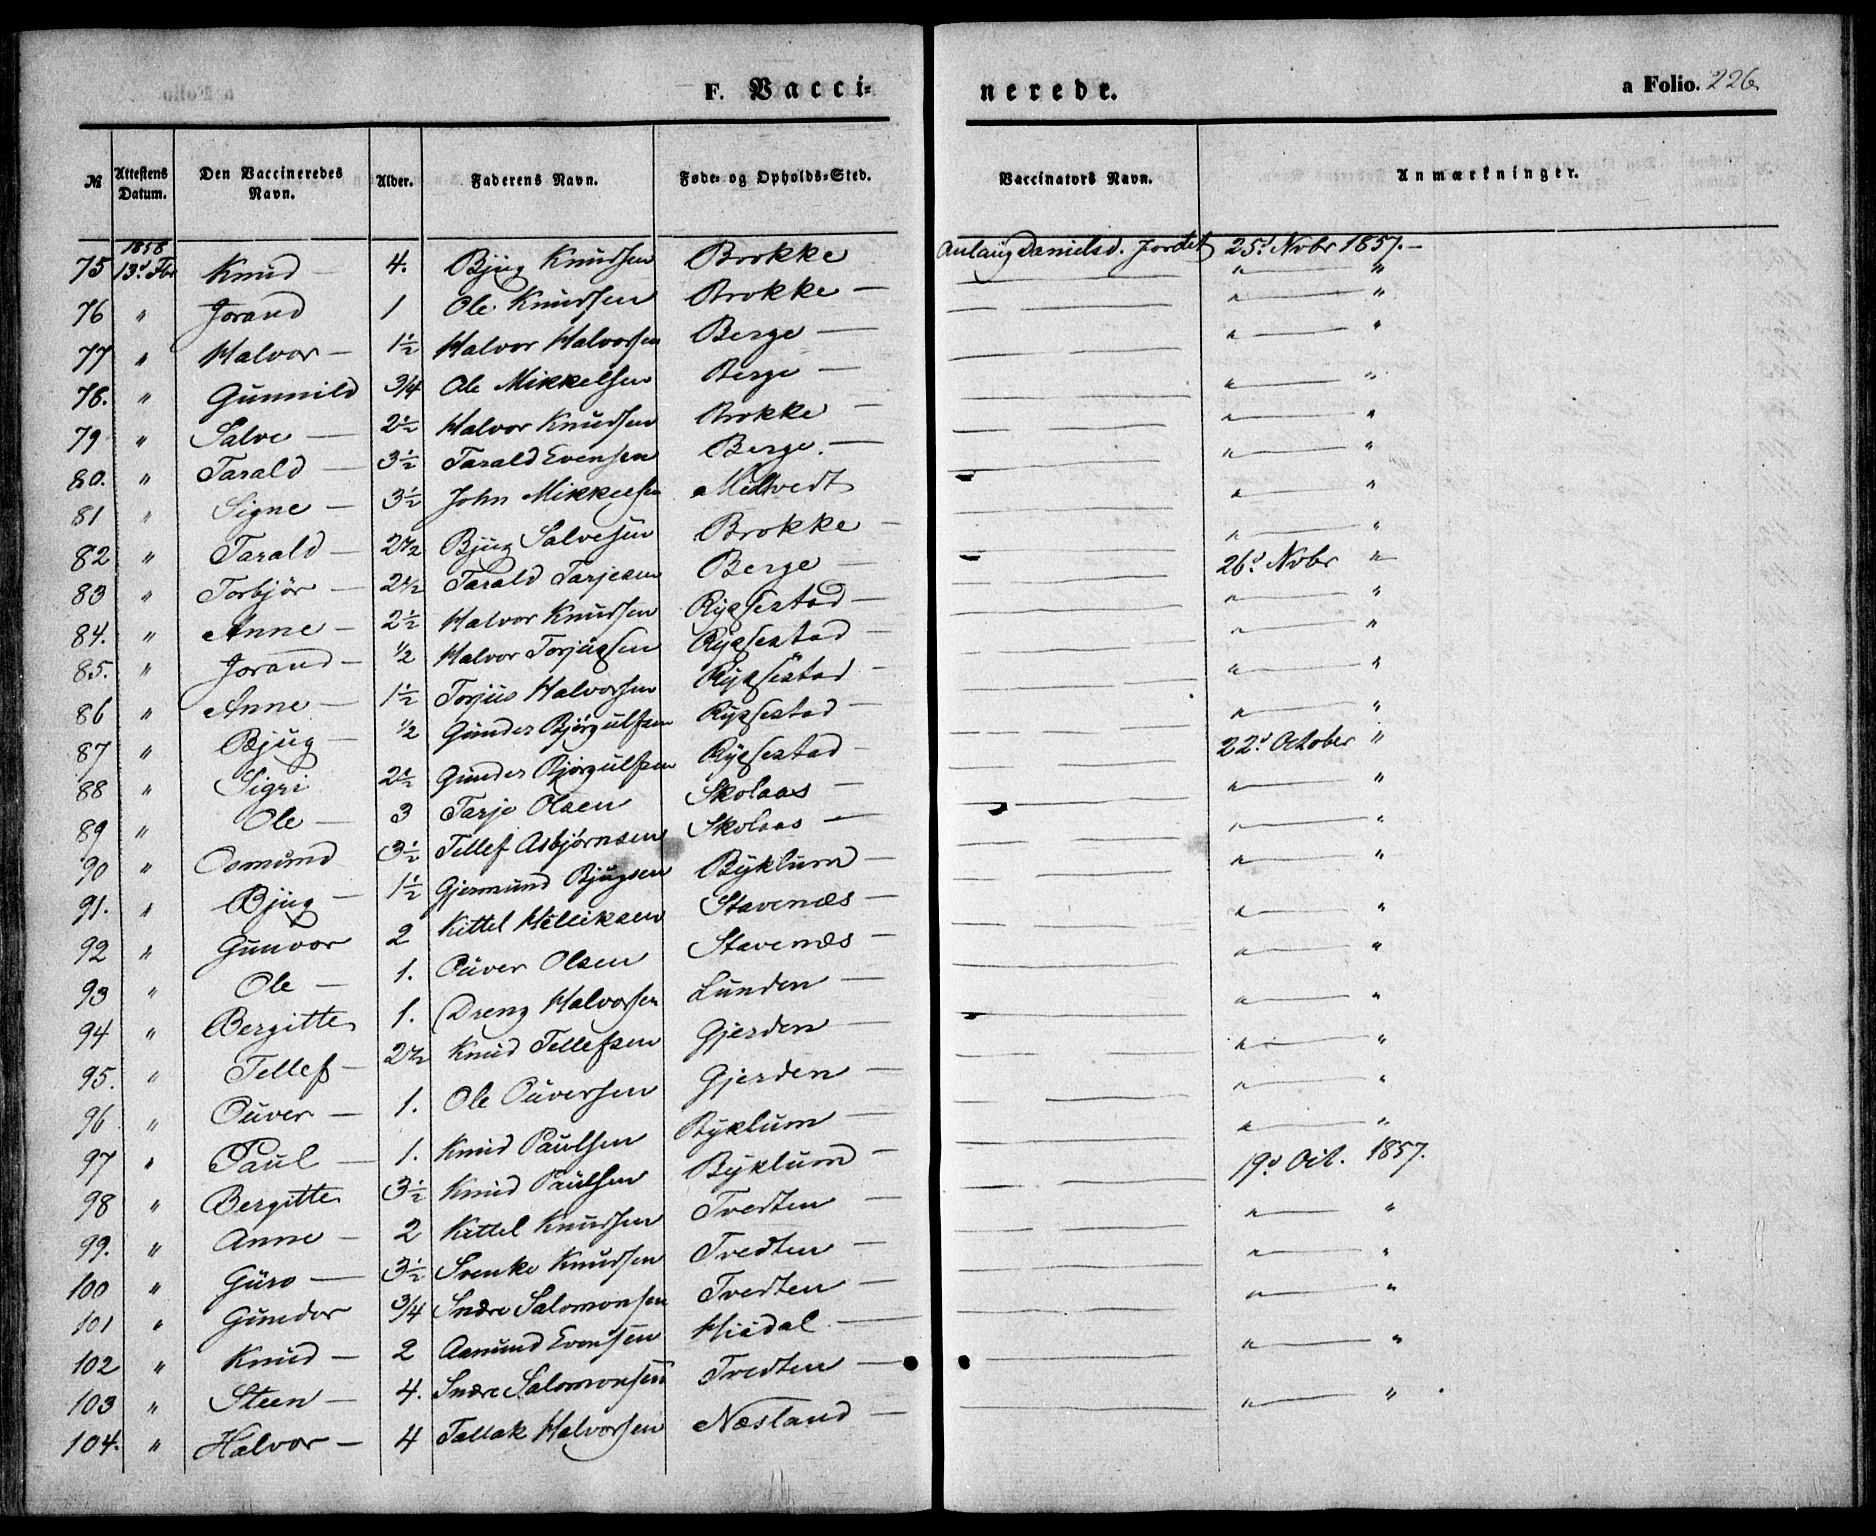 F. Vacci- nerede. a Folio. 226
№ Attestens Datum. Den Vaccineredes Navn. Alder. Faderens Navn. Føde- og Opholds-Sted. Vaccinators Navn. Anmærkninger.
1858
75 13d Fbr Knud — 4. Bjug Knudsen Brokke Anlaug Danielsd. Jordet 25d Novbr 1857. —
76 " Jorand 1 Ole Knudsen Brokke — " — "
77 " Halvor — 1½ Halvor Halvorsen Berge — " — "
78. " Gunnild 3/4 Ole Mikkelsen Berge — " — "
79 " Salve — 2½ Halvor Knudsen Brokke — " — "
80. " Tarald — 3½ Tarald Evensen Berge. — " — "
81 " Signe — 3½ John Mikkelsen Meltvedt " — "
82 " Tarald — 2½ Bjug Salvesen Brokke — " — "
83 " Torbjør — 2½ Tarald Tarjesen Berge — 26d Novbr "
84. " Anne — 2½ Halvor Knudsen Rygsestad — " — "
85. " Jorand — ½ Halvor Torjugsen Rygsestad — " — "
86 " Anne — 1½ Torjus Halvorsen Rygsestad — " — "
87 " Bjug — ½ Gunder Bjørgulfsen Rygsestad — " — "
88 " Sigri 2½ Gunder Bjørgulfsen Rygsestad — 22d October "
89 " Ole — 3 Tarje Olsen Skolaas — " — "
90 " Osmund 3½ Tellef Asbjørnsen Skolaas — " — "
91. " Bjug — 1½ Gjermund Bjugsen Byklum — " — "
92 " Gunvor 2 Kittel Helliksen Stavenæs — " — "
93 " Ole — 1. Ouver Olsen Stavenæs — " — "
94 " Bergitte 1. Dreng Halvorsen Lunden — " — "
95. " Tellef — 2½ Knud Tellefsen Gjerden — " — "
96 " Ouver — 1. Ole Ouversen Gjerden — " — "
97 " Paul — 1. Knud Paulsen Byklum — " — "
98 " Bergitte 3½ Knud Paulsen Byklum — 19d Oct. 1857.
99. " Anne — 2 Kittel Knudsen Tvedten — " — "
100 " Guro — 3½ Svenke Knudsen Tvedten — " — "
101 " Gunder 3/4 Snære Salomonsen Tvedten — " — "
102 " Knud — 2 Asmund Evensen — " — "
103 " Steen — 4. Snære Salomonsen Tvedten — " — "
104. " Halvor — 4 Tallak Halvorsen Næsland —